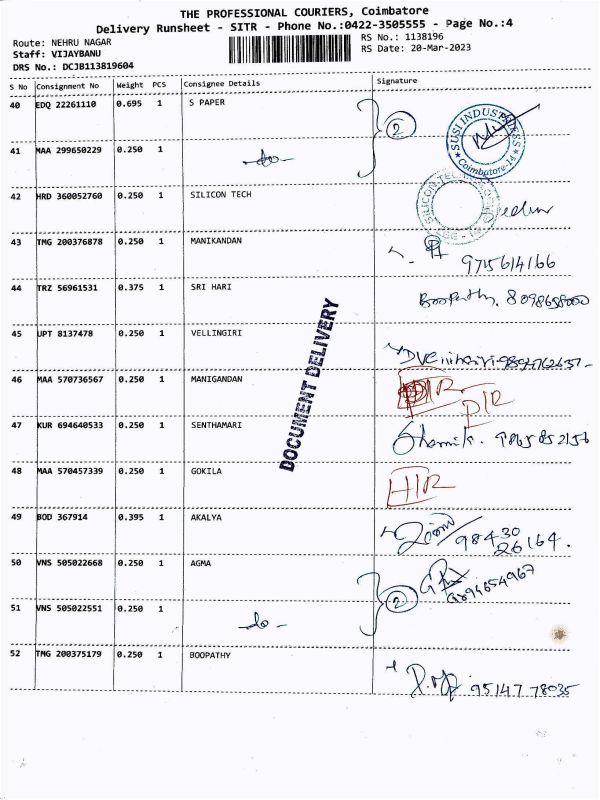 THE PROFESSIONAL COURIERS, Coimbatore
Delivery Runsheet - SITR - Phone No.:0422-3505555 - Page No.:4
Route: NEHRU NAGAR
Staff: VIJAYBANU
DRS No.: DCJB113819604
RS No.: 1138196
RS Date: 20-Mar-2023
S No Consignment No Weight PCS Consignee Details Signature
40 EDQ 22261110 0.695 1 S PAPER
2
SUSI INDUS
Coimbatore-14
41 MAA 299650229 0.250 1 -do-
42 HRD 360052760 0.250 1 SILICON TECH
SILICON TECH
43 TMG 200376878 0.250 1 MANIKANDAN
9715614166
44 TRZ 56961531 0.375 1 SRI HARI
Boopathy.
45 UPT 8137478 0.250 1 VELLINGIRI
DOCUMENT DELIVERY
46 MAA 570736567 0.250 1 MANIGANDAN
DIR
47 KUR 694640533 0.250 1 SENTHAMARI
9865852156
48 MAA 570457339 0.250 1 GOKILA
HIR
49 BOD 367914 0.395 1 AKALYA
98430
26164.
50 VNS 505022668 0.250 1 AGMA
2
51 VNS 505022551 0.250 1 -do-
52 TMG 200375179 0.250 1 BOOPATHY
95147 78035